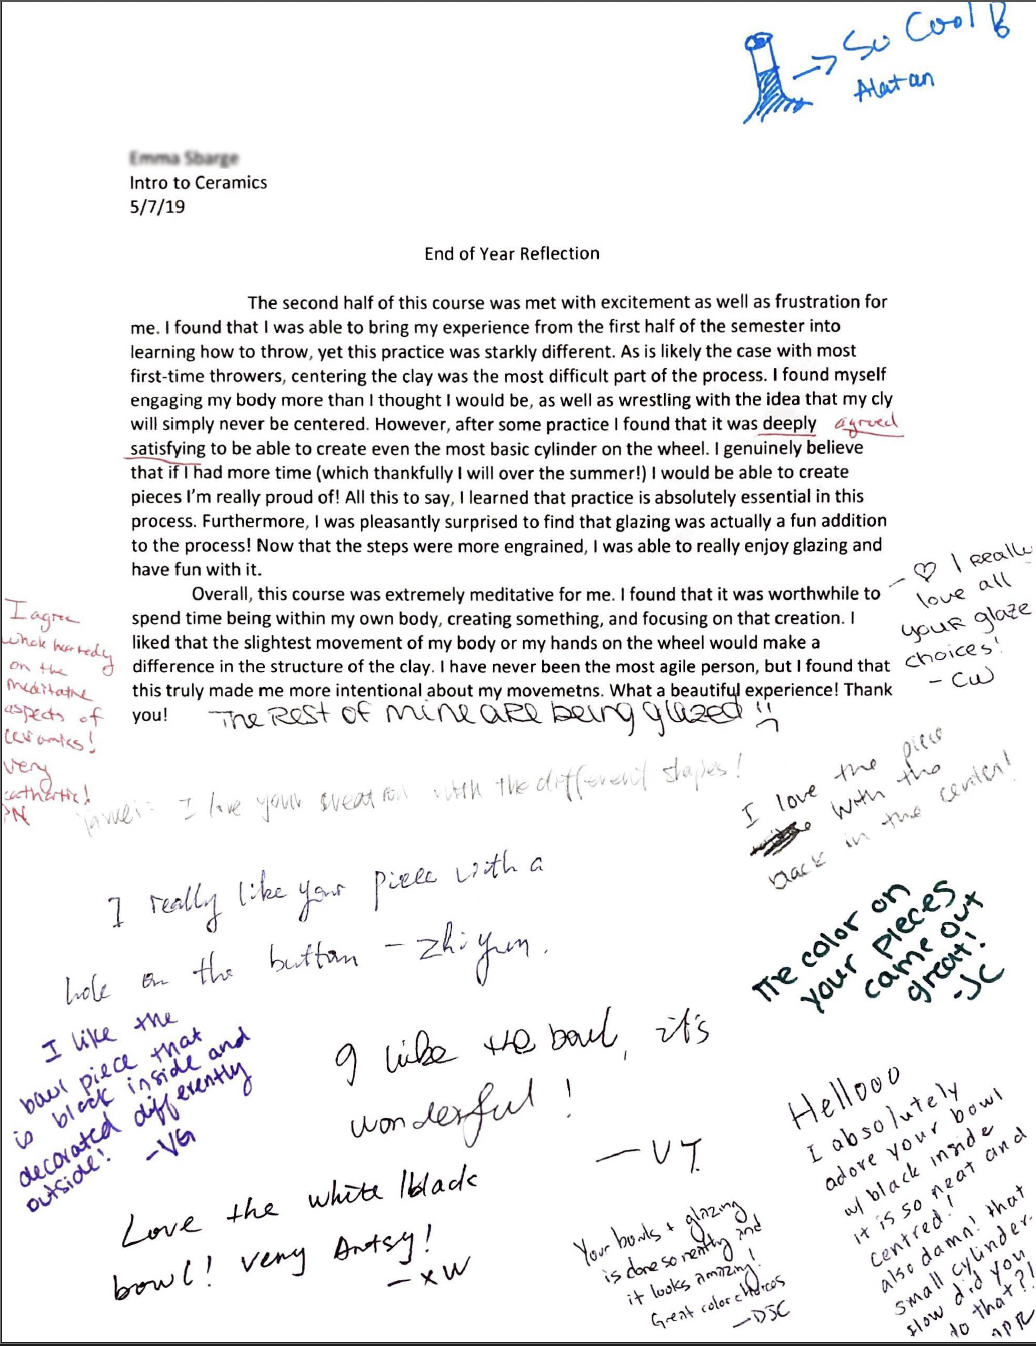 So Cool
Alatan
Intro to Ceramics
5/7/19
End of Year Reflection
The second half of this course was met with excitement as well as frustration for
me. I found that I was able to bring my experience from the first half of the semester into
learning how to throw, yet this practice was starkly different. As is likely the case with most
first-time throwers, centering the clay was the most difficult part of the process. I found myself
engaging my body more than I thought I would be, as well as wrestling with the idea that my cly
will simply never be centered. However, after some practice I found that it was deeply agreed
satisfying to be able to create even the most basic cylinder on the wheel. I genuinely believe
that if I had more time (which thankfully I will over the summer!) I would be able to create
pieces I'm really proud of! All this to say, I learned that practice is absolutely essential in this
process. Furthermore, I was pleasantly surprised to find that glazing was actually a fun addition
to the process! Now that the steps were more engrained, I was able to really enjoy glazing and
have fun with it.
Overall, this course was extremely meditative for me. I found that it was worthwhile to
spend time being within my own body, creating something, and focusing on that creation. I
liked that the slightest movement of my body or my hands on the wheel would make a
difference in the structure of the clay. I have never been the most agile person, but I found that
this truly made me more intentional about my movemetns. What a beautiful experience! Thank
you!
The Rest of mine are being glazed !!
- ♡ I Really
love all
your glaze
choices!
- CW
I agree
on the
meditative
aspects of
ceramics!
very
cathartic!
PN
I love your with the different shapes!
I love the piece
with the
black in the center!
I really like your piece with a
hole on the button - Zhiyun.
The color on
your pieces
came out
great!
-JC
I like the
bowl piece that
is black inside and
decorated differently
outside! -VG
I like the bowl, it's
wonderful!
- VT
Hellooo
I absolutely
adore your bowl
w/ black inside
it is so neat and
centred!
also damn! that
small cylinder.
How did you
do that?!
APR
Love the white/black
bowl! very Artsy!
- XW
Your bowls + glazing
is done so neatly and
it looks amazing!
Great color choices
- DJC